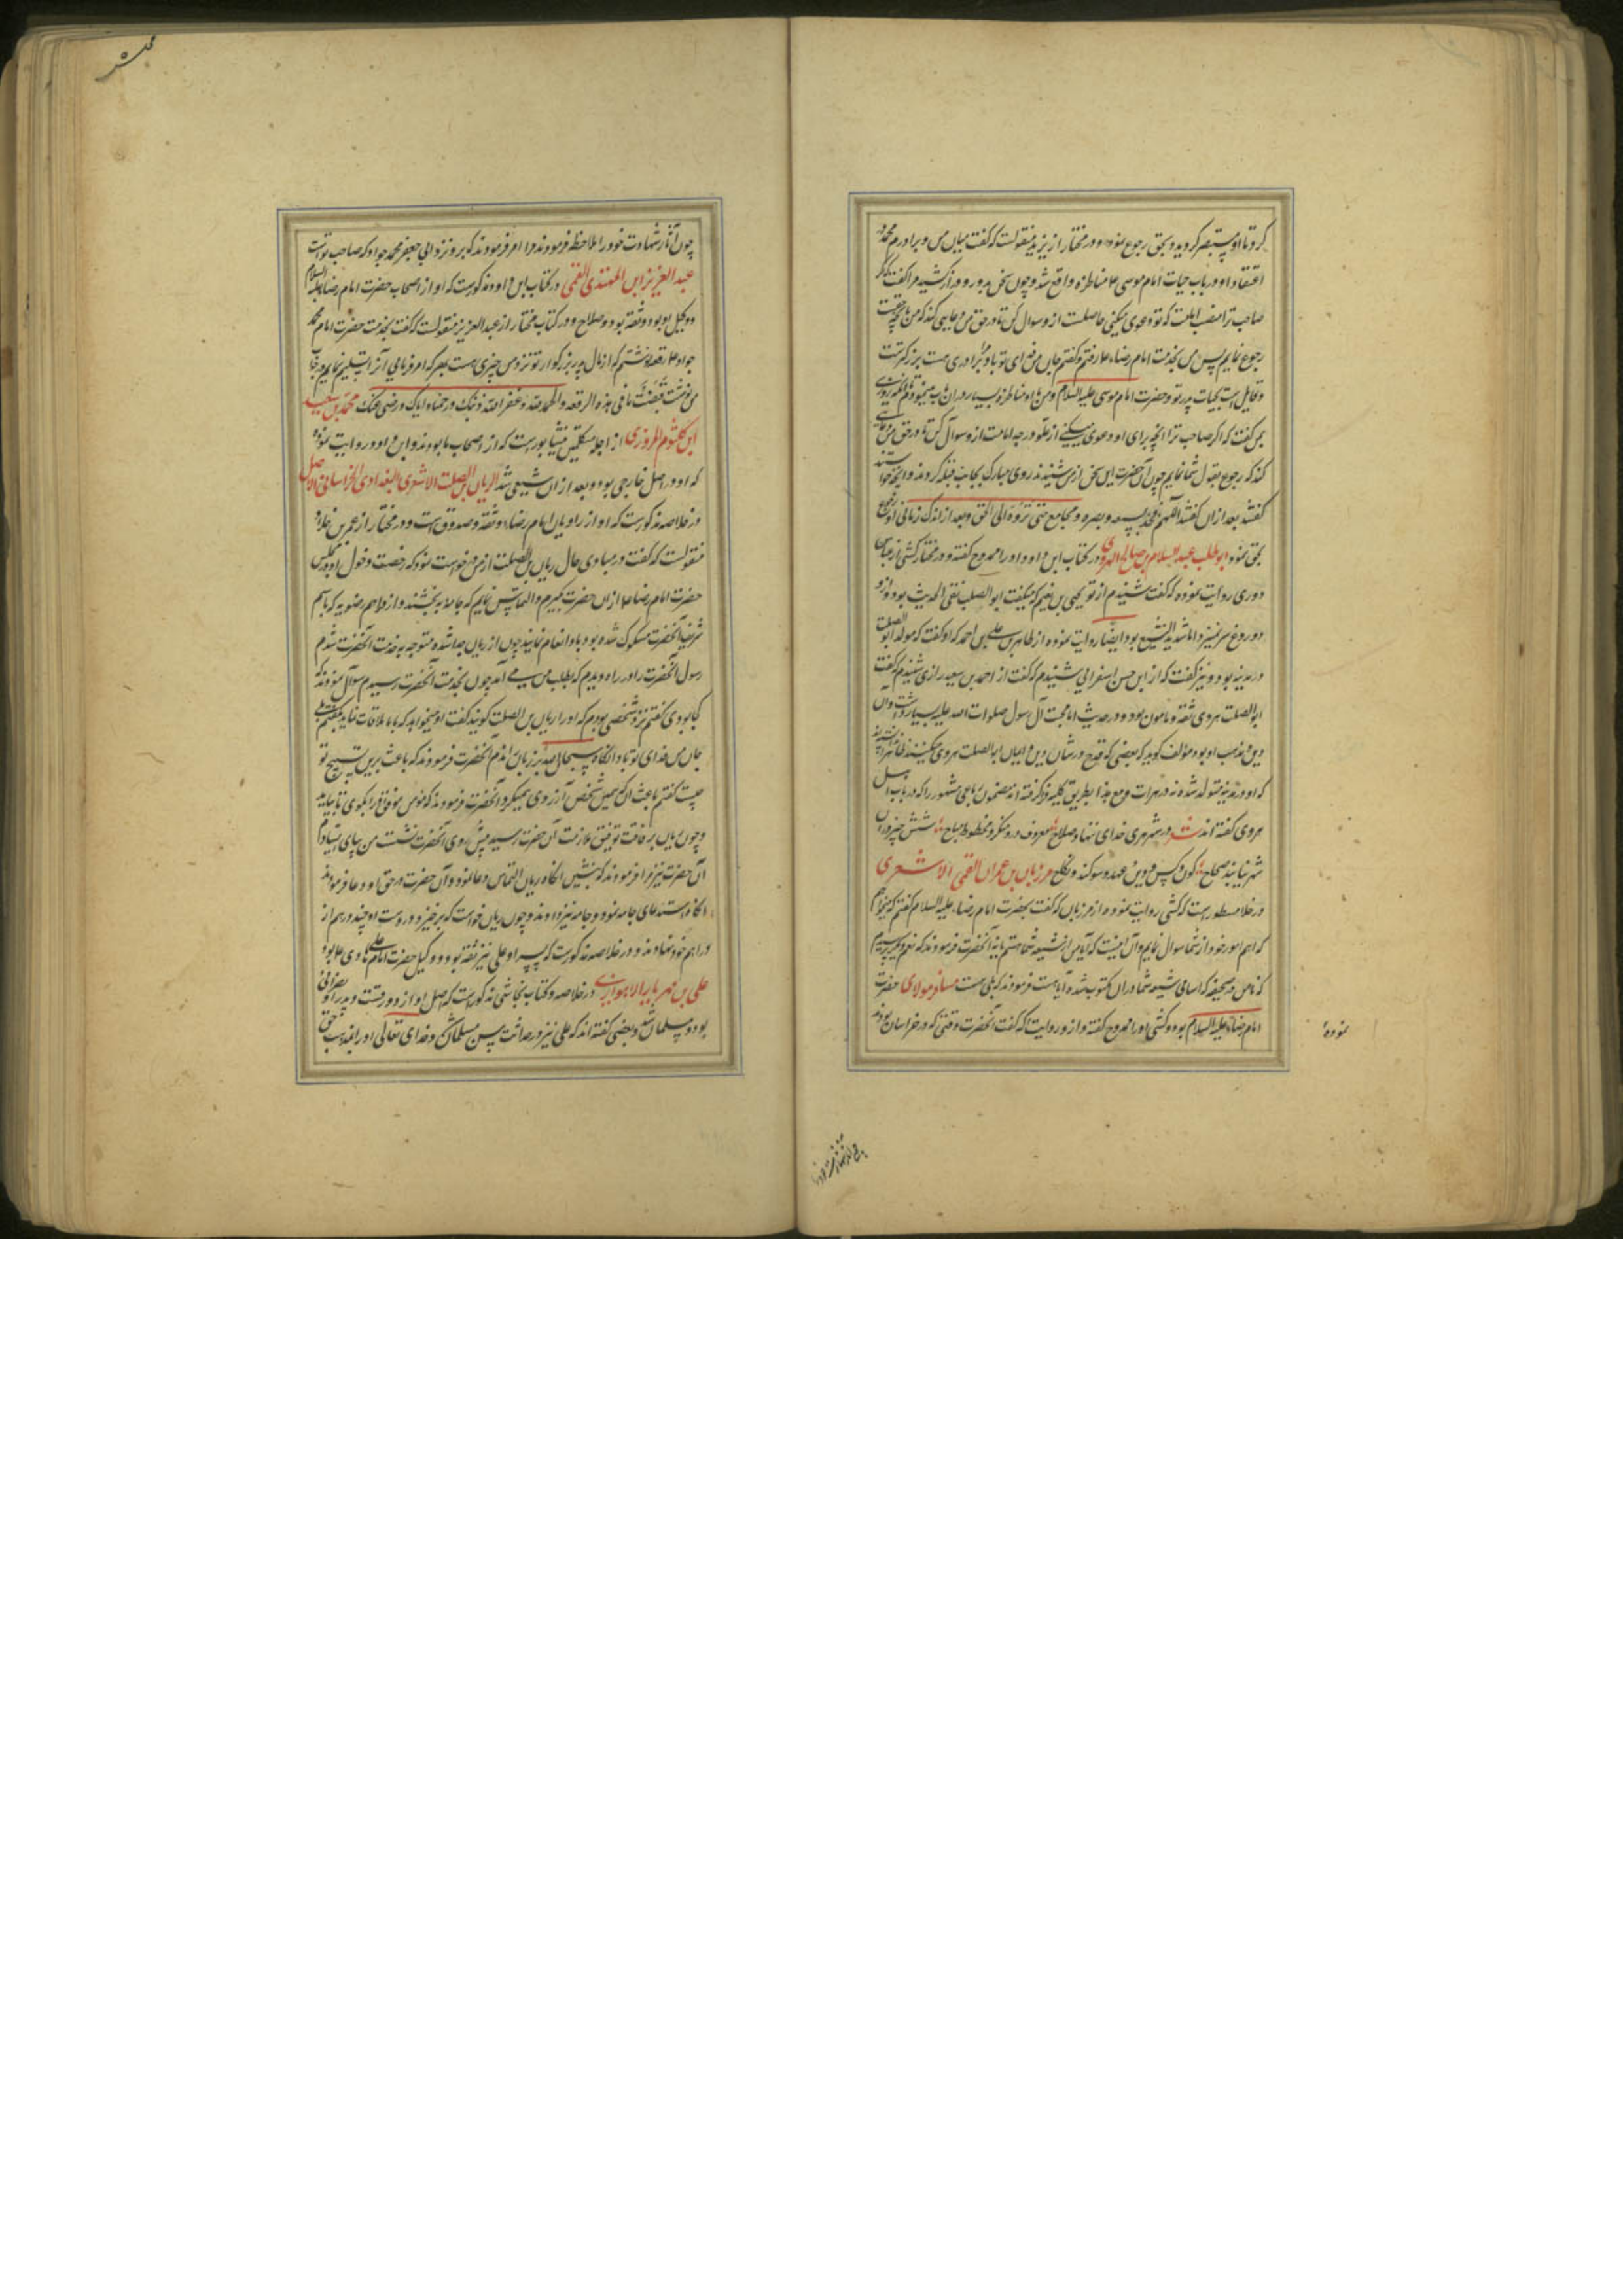 کرد تا او مستبصر گردید و بحق رجوع نمود و در مختار از یزید منقولست که گفت میان من و برادرم محمد
اعتقاد او در باب حیات امام موسی ع مناظره واقع شد و چون سخن بدور و دراز کشید مرا گفت که اگر
صاحب ترا منصب امامت که تو دعوی میکنی حاصلست ازو سوال کن تا در حق من دعایی کند که من بآنچه حق است
رجوع نمایم پس من بخدمت امام رضا ع رفتم و گفتم جان من فدای تو باد مرا برادری هست بزرگتر از من
و قایل است بحیات پدر تو حضرت امام موسی علیه السلام و من با او مناظره بسیار در آن باب مینمودم تا آنکه روزی
بمن گفت که اگر صاحب ترا آنچه برای او دعوی میکنی از علو درجه امامت ازو سوال کن تا در حق من دعایی
کند که رجوع بقول شما نمایم چون آن حضرت این سخن از من شنیدند روی مبارک بجانب قبله کردند و آنچه خواستند
گفتند بعد از آن گفتند اللهم خذ بسمعه و بصره و مجامع حتی ترده الی الحق و بعد از اندک زمانی او رجوع
بحق نمود ابو الصلت عبد السلام بن صالح الهروی در کتاب ابن داود او را ممدوح گفته و در مختار کشی از عباس
دوری روایت نموده که گفت شنیدم از یحیی بن نعیم که میگفت ابو الصلت نقی الحدیث بود و ازو
دروغ سر نمیزد اما شدید التشیع بود و ایضا روایت نموده از طاهر بن علی بن احمد که او گفت که مولد ابو الصلت
در مدینه بود و نیز گفت که از ابن حسن اسفراینی شنیدم که گفت از احمد بن سعید رازی شنیدم که گفت
ابو الصلت هروی ثقه و مامون بود و در حدیث اما محبت آل رسول صلوات الله علیه بسیار داشت و آن
دین و مذهب او بود مؤلف گوید که بعضی که قدح در شان دین و ایمان ابو الصلت هروی میکنند
که او در مدینه متولد شده نه در هرات و مع هذا بطریق کلیه فرا گرفته اند مضمون رباعی مشهور را که در باب اهل
هروی گفته اند در شهر هری خدای ننهاد صلاح معروف درو منکر و محظور مباح شش چیز در آن
شهر نیابند صحاح و دین و عهد و سوگند و نکاح مرزبان بن عمران القمی الاشعری
در خلاصه مسطورست که کشی روایت نموده از مرزبان که گفت بحضرت امام رضا علیه السلام گفتم که میخواهم
که اهم امور خود از شما سوال نمایم و آن اینست که آیا من از شیعه شما هستم یا نه آنحضرت فرمودند که نعم دیگر پرسیدم
که نام من در صحیفه که اسامی شیعه شما در آن مکتوب شده آیا هست فرمودند که بلی هست مسافر مولای حضرت
امام رضا علیه السلام بود و کشی او را ممدوح گفته و ازو روایت که گفت آنحضرت وقتی که در خراسان بودند
نموده
چون آثار شهادت خود را ملاحظه فرمودند مرا امر فرمودند که برو نزد ابی جعفر محمد جواد که صاحب تو است
عبد العزیز ابن المهتدی القمی در کتاب ابن داود مذکورست که او از اصحاب حضرت امام رضا علیه السلام
و وکیل او بود و ثقه بود و صلاح و در کتاب مختار از عبد العزیز منقولست که گفت بخدمت حضرت امام محمد
جواد ع رقعه نوشتم که از مال پدر بزرگوار تو نزد من چیزی هست بهر که امر فرمایی آنرا تسلیم نمایم در جواب
من نوشت قبضت ما فی هذه الرقعه و الحمد لله و غفر الله ذنبک و رحمنا و ایاک و رضی عنک محمد بن سعید
ابن کلثوم المروزی از اجله متکلمین نیشابورست که از اصحاب ما بودند و ابن داود روایت نموده
که او در اصل خارجی بود و بعد از آن شیعی شد الریان بن الصلت الاشعری البغدادی الخراسانی الاصل
در خلاصه مذکورست که او از راویان امام رضا و ثقه و صدوق است و در مختار از معمر بن خلاد
منقولست که گفت در مبادی حال ریان بن الصلت از من درخواست نمود که رخصت دخول او در مجلس
حضرت امام رضا ع از آن حضرت بگیرم و التماس نمایم که جامه باو بخشند و از دراهم رضویه که باسم
شریف آنحضرت مسکوک شده بود باو انعام نمایند چون از ریان جدا شده متوجه بخدمت آنحضرت شدم
رسول آنحضرت را در راه دیدم که بطلب من می آمد چون بخدمت آنحضرت رسیدم سوال نمودند که
کجا بودی گفتم نزد شخصی بودم که او را ریان بن الصلت گویند گفت او میخواهد که با ما ملاقات نماید گفتم بلی
جان من فدای تو باد آنگاه سبحان الله بر زبان راندم آنحضرت فرمودند که باعث برین تسبیح تو
چیست گفتم باعث آنکه همین شخص آرزوی همین میکرد آنحضرت فرمودند که مؤمن موفق او را بگوی تا بیاید
و چون ریان برفاقت توفیق ملازمت آن حضرت رسید پیش روی آنحضرت نشست من بپای ایستادم
آن حضرت نیز مرا فرمودند که بنشین آنگاه ریان التماس دعا نمود و آن حضرت در حق او دعا فرمودند
آنگاه استدعای جامه نمود و جامه نیز دادند و چون ریان خواست که برخیزد در دست او چند درهم از
دراهم خود نهادند و در خلاصه مذکورست که پسر او علی نیز ثقه بود و وکیل حضرت امام علی هادی ع بود
علی بن مهزیار الاهوازی در خلاصه و کتاب نجاشی مذکورست که اصل او از دورقست و پدر او نصرانی
بود و مسلمان شد و بعضی گفته اند که علی نیز در حداثت سن مسلمان شد و خدای تعالی او را بمذهب حق